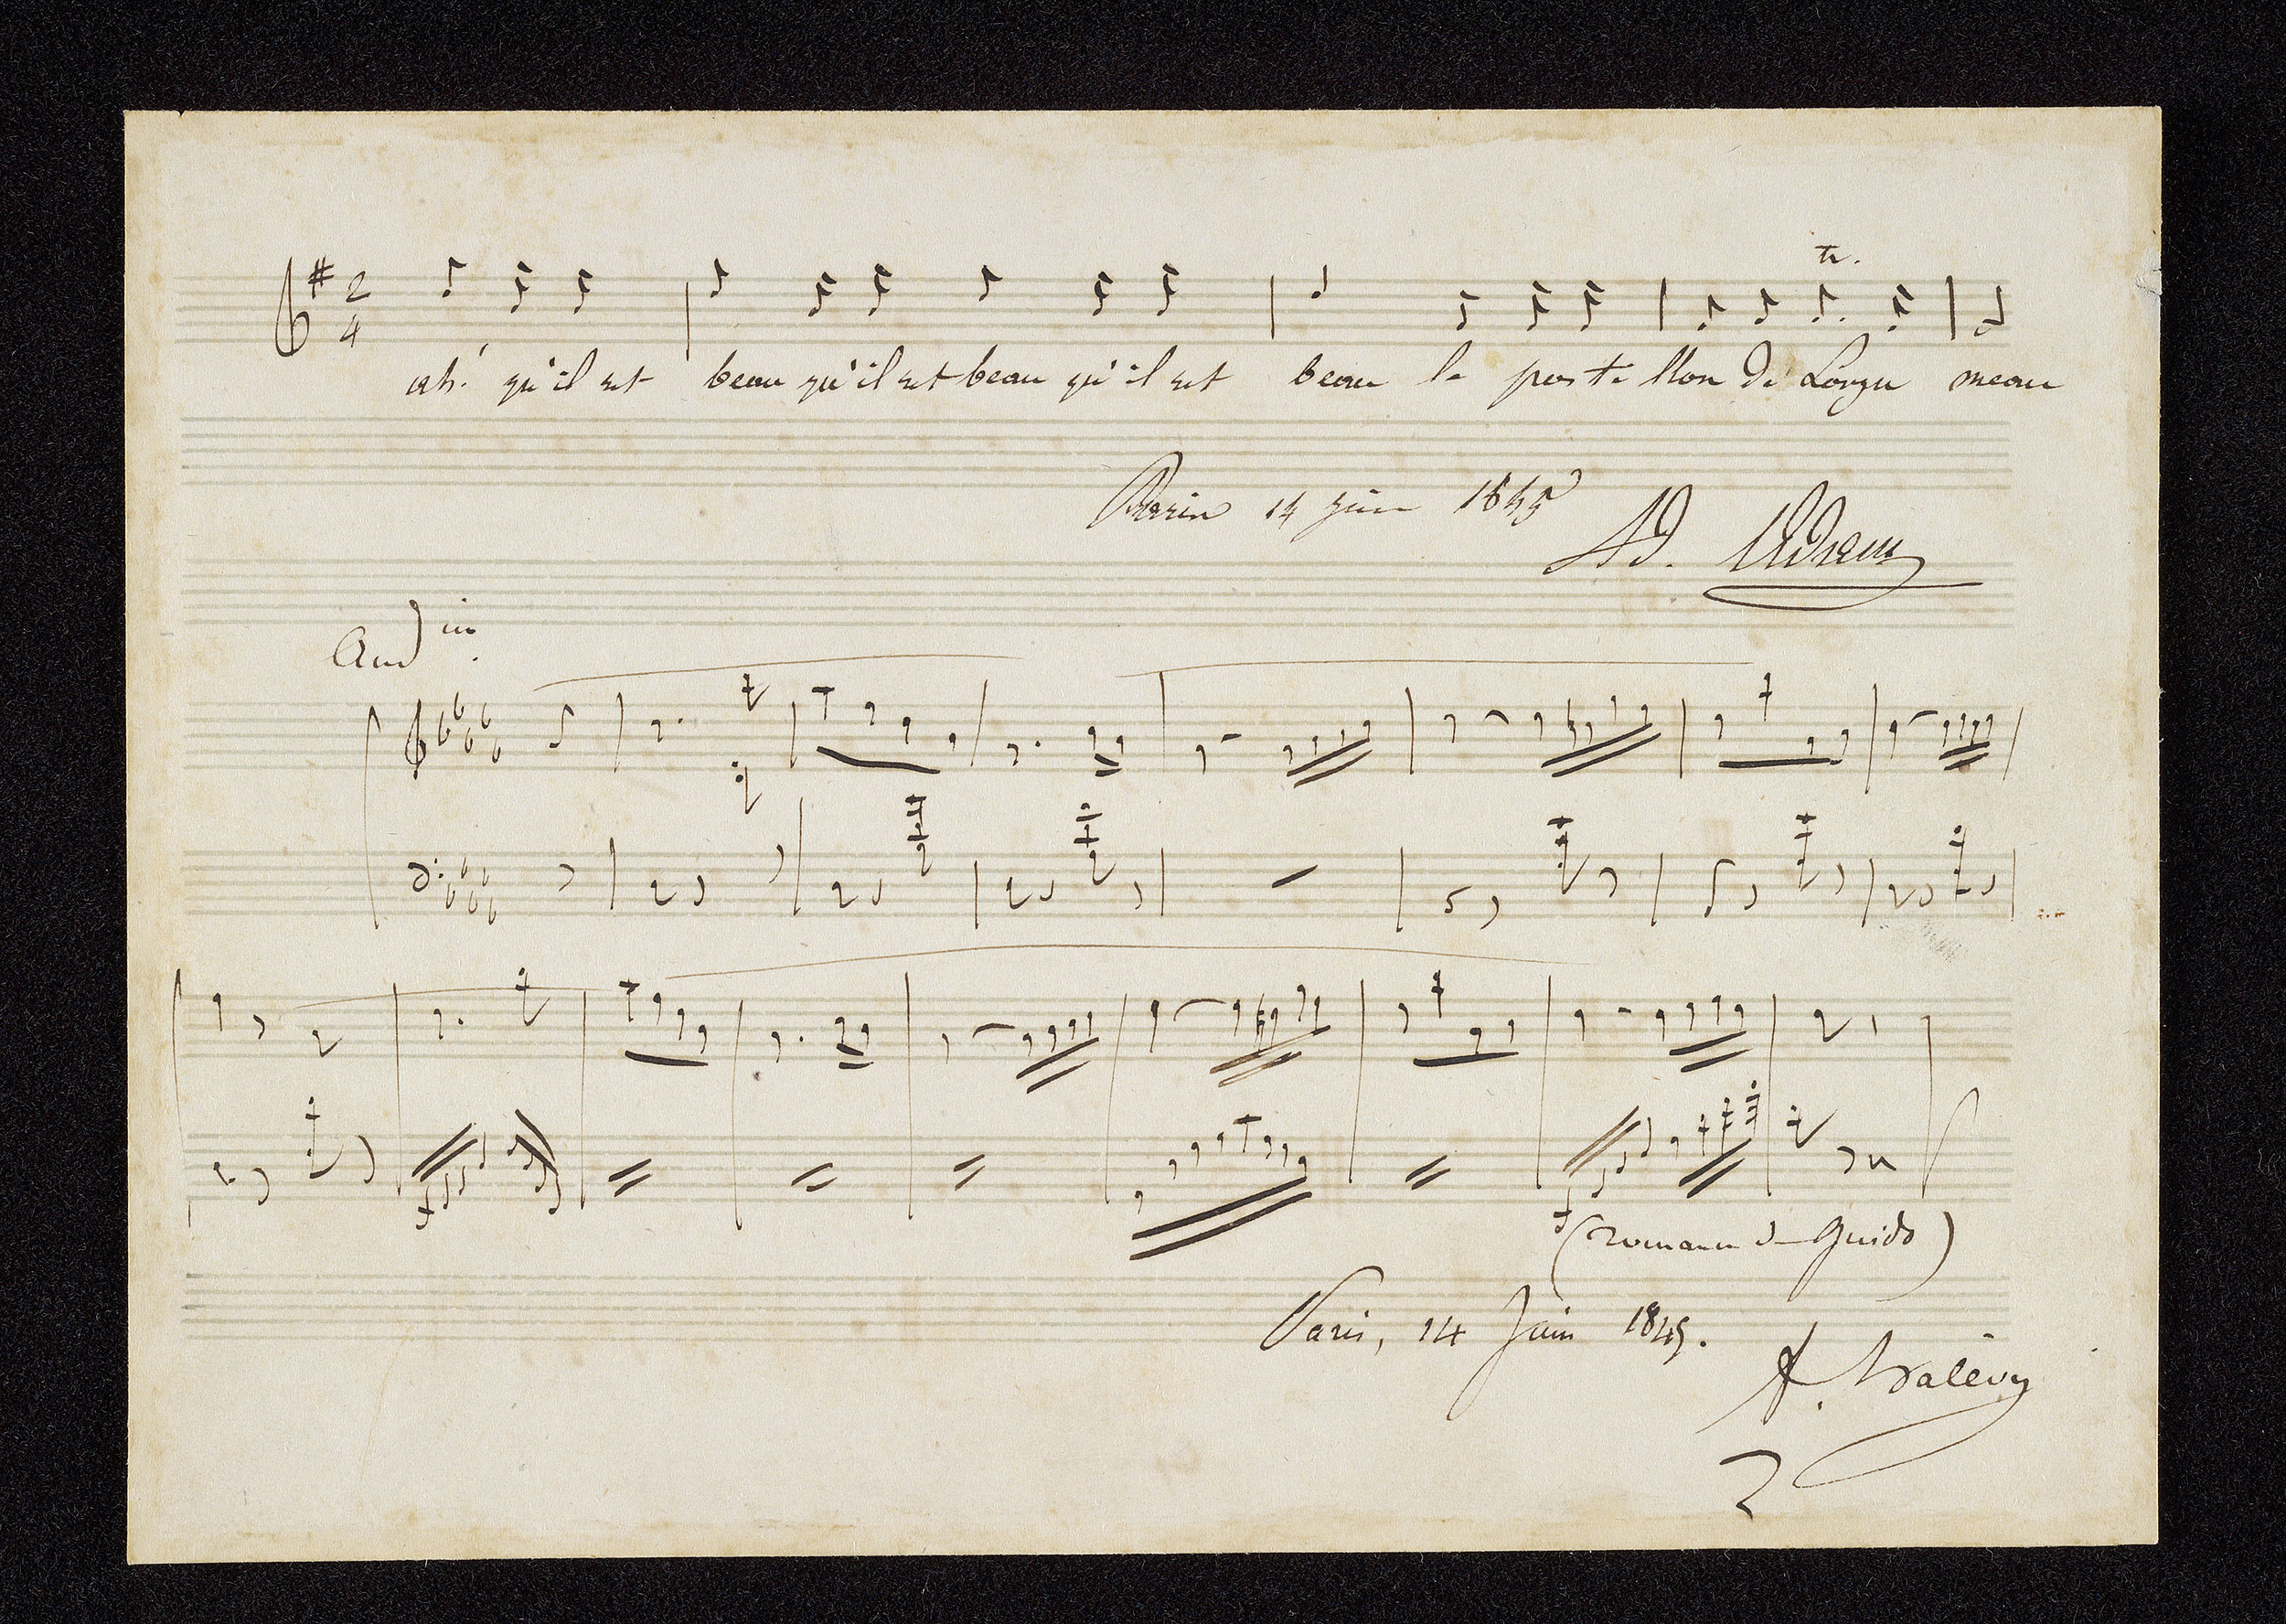 2
4
tr.
ah! qu'il est beau qu'il est beau qu'il est beau le postillon de Lonju meau
Paris 14 juin 1845
Ad. Adam
And.in
(Romance de Guido)
Paris, 14 Juin 1845.
F. Halévy